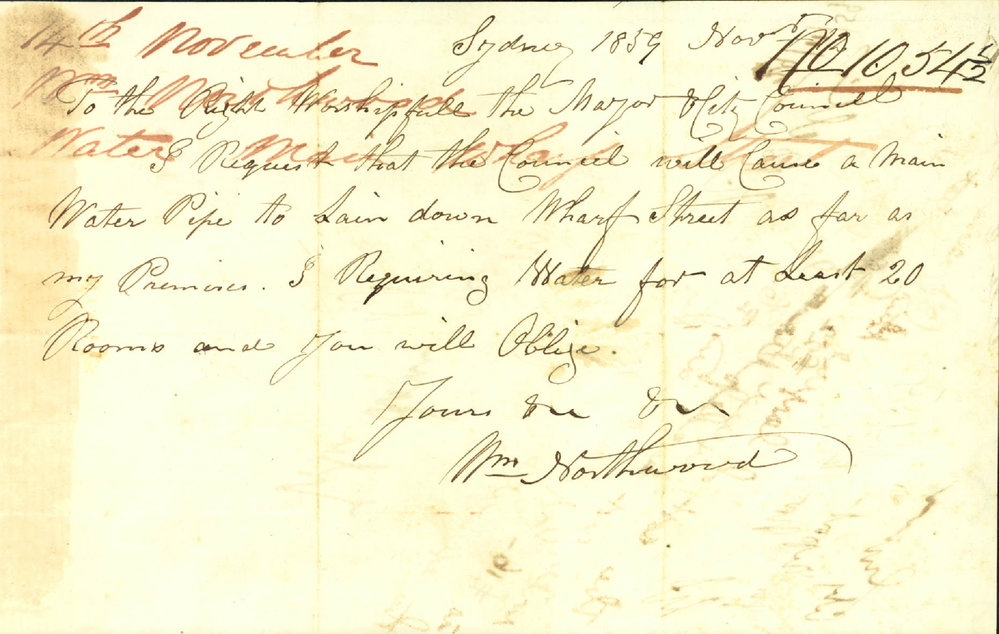 14th November
Sydney 1859 Novr
No 1054½
To the Right Worshipfull the Mayor & City Council
Water Main Wharf Street
I Request that the Council will Cause a Main
Water Pipe to Lain down Wharf Street as far as
my Premises. I Requiring Water for at Least 20
Rooms and You will Oblige.
Yours &c &c
Wm Northwood